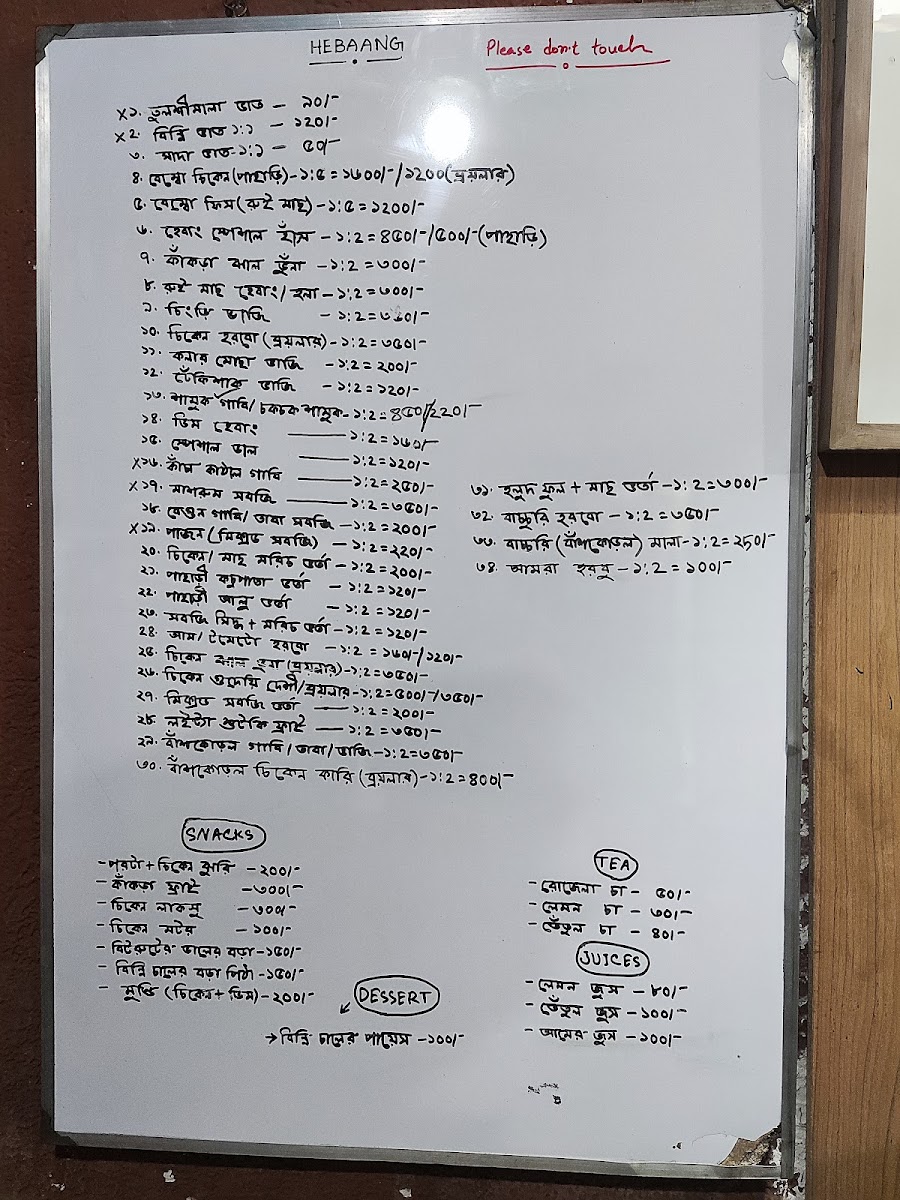 HEBAANG Please don't touch
X১. তুলশীমালা ভাত - ৯০/-
X২. বিন্নি ভাত ১:১ - ১২০/-
৩. সাদা ভাত-১:১ - ৫০/-
৪. বেম্বো চিকেন (পাহাড়ি)-১:৫ = ১৬০০/-/১২০০(ব্রয়লার)
৫. বেম্বো ফিস (রুই মাছ)-১:৫ = ১২০০/-
৬. হেবাং স্পেশাল হাঁস - ১:২ = ৪৫০/-/৫০০/-(পাহাড়ি)
৭. কাঁকড়া ঝাল ভুঁনা - ১:২ = ৩০০/-
৮. রুই মাছ হেবাং/হলা - ১:২ = ৩০০/-
৯. চিংড়ি ভাজি - ১:২ = ৩৫০/-
১০. চিকেন হরবো (ব্রয়লার) - ১:২ = ৩৫০/-
১১. কলার মোচা ভাজি - ১:২ = ২০০/-
১২. ঢেঁকিশাক ভাজি - ১:২ = ১২০/-
১৩. শামুক গাবি/চকচক শামুক-১:২ = ৪৫০/২২০/-
১৪. ডিম হেবাং — ১:২ = ১৬০/-
১৫. স্পেশাল ডাল — ১:২ = ১২০/-
X১৬. কাঁচা কাঠাল গাবি — ১:২ = ২৫০/-
X১৭. মাশরুম সবজি — ১:২ = ৩৫০/-
১৮. বেগুন গাবি/তাবা সবজি - ১:২ = ২০০/-
X১৯. পাজন (মিক্সড সবজি) - ১:২ = ২২০/-
২০. চিকেন/মাছ মরিচ ভর্তা - ১:২ = ২০০/-
২১. পাহাড়ী কচুপাতা ভর্তা - ১:২ = ১২০/-
২২. পাহাড়ী আলু ভর্তা - ১:২ = ১২০/-
২৩. সবজি সিদ্ধ + মরিচ ভর্তা - ১:২ = ১২০/-
২৪. আম/টমেটো হরবো - ১:২ = ১৬০/-/১২০/-
২৫. চিকেন ঝাল ভুনা (ব্রয়লার)-১:২ = ৩৫০/-
২৬. চিকেন গুদেয়ি দেশী/ব্রয়লার-১:২ = ৫০০/-/৩৫০/-
২৭. মিক্সড সবজি ভর্তা — ১:২ = ২০০/-
২৮. লইট্টা শুটকি ফ্রাই — ১:২ = ৩৫০/-
২৯. বাঁশকোড়ল গাবি/তাবা/ভাজি-১:২=৩৫০/-
৩০. বাঁশকোড়ল চিকেন কারি (ব্রয়লার)-১:২=৪০০/-
৩১. হলুদ ফুল + মাছ ভর্তা -১:২=৩০০/-
৩২. বাচ্চুরি হরবো - ১:২ = ৩৫০/-
৩৩. বাচ্চুরি (বাঁশকোড়ল) মালা-১:২=২৫০/-
৩৪. আমরা হরবু - ১:২ = ১০০/-
SNACKS
- পরটা + চিকেন ঝুরি - ২০০/-
- কাঁকড়া ফ্রাই - ৩০০/-
- চিকেন লাকসু - ৩০০/-
- চিকেন মটর - ১০০/-
- বিটরুটের ডালের বড়া -১৫০/-
- বিন্নি চালের বড়া পিঠা -১৫০/-
- মুন্ডি (চিকেন + ডিম) - ২০০/-
DESSERT
→ বিন্নি চালের পায়েস -১০০/-
TEA
- রোজেলা চা - ৫০/-
- লেমন চা - ৩০/-
- তেঁতুল চা - ৪০/-
JUICES
- লেমন জুস - ৮০/-
- তেঁতুল জুস - ১০০/-
- আমের জুস - ১০০/-